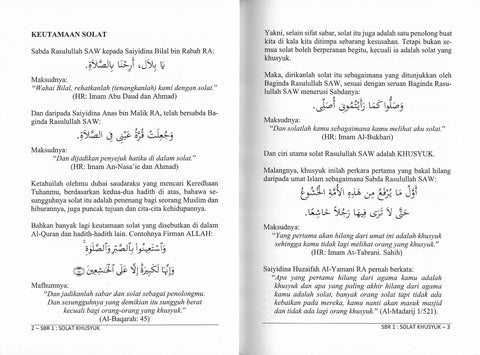 KEUTAMAAN SOLAT
Sabda Rasulullah SAW kepada Saiyidina Bilal bin Rabah RA:
يَا بِلَالُ، أَرِحْنَا بِالصَّلَاةِ.
Maksudnya:
"Wahai Bilal, rehatkanlah (tenangkanlah) kami dengan solat."
(HR: Imam Abu Daud dan Ahmad)
Dan daripada Saiyidina Anas bin Malik RA, telah bersabda Ba-
ginda Rasulullah SAW:
وَجُعِلَتْ قُرَّةُ عَيْنِي فِي الصَّلَاةِ.
Maksudnya:
"Dan dijadikan penyejuk hatiku di dalam solat."
(HR: Imam An-Nasa'ie dan Ahmad)
Ketahuilah olehmu duhai saudaraku yang mencari Keredhaan
Tuhanmu, berdasarkan kedua-dua hadith di atas, bahawa se-
sungguhnya solat itu adalah penenang bagi seorang Muslim dan
hiburannya, juga puncak tujuan dan cita-cita kehidupannya.
Bahkan banyak lagi keutamaan solat yang disebutkan di dalam
Al-Quran dan hadith-hadith lain. Contohnya Firman ALLAH:
وَاسْتَعِينُوا بِالصَّبْرِ وَالصَّلَوٰةِ ۚ
وَإِنَّهَا لَكَبِيرَةٌ إِلَّا عَلَى الْخَاشِعِينَ
Mafhumnya:
"Dan jadikanlah sabar dan solat sebagai penolongmu.
Dan sesungguhnya yang demikian itu sungguh berat
kecuali bagi orang-orang yang khusyuk."
(Al-Baqarah: 45)
2 – SBR 1 : SOLAT KHUSYUK
Yakni, selain sifat sabar, solat itu juga adalah satu penolong buat
kita di kala kita ditimpa sebarang kesusahan. Tetapi bukan se-
mua solat boleh berperanan begitu, kecuali ia adalah solat yang
khusyuk.
Maka, dirikanlah solat itu sebagaimana yang ditunjukkan oleh
Baginda Rasulullah SAW, sesuai dengan seruan Baginda Rasu-
lullah SAW menerusi Sabdanya:
وَصَلُّوا كَمَا رَأَيْتُمُونِي أُصَلِّي.
Maksudnya:
"Dan solatlah kamu sebagaimana kamu melihat aku solat."
(HR: Imam Al-Bukhari)
Dan ciri utama solat Rasulullah SAW adalah KHUSYUK.
Malangnya, khusyuk inilah perkara pertama yang bakal hilang
daripada umat Islam sebagaimana Sabda Rasulullah SAW:
أَوَّلُ مَا يُرْفَعُ مِنْ هَذِهِ الْأُمَّةِ الْخُشُوعُ
حَتَّى لَا تَرَى فِيهَا رَجُلًا خَاشِعًا.
Maksudnya:
"Yang pertama akan hilang dari umat ini adalah khusyuk
sehingga kamu tidak lagi melihat orang yang khusyuk."
(HR: Imam At-Tabrani. Sahih)
Saiyidina Huzaifah Al-Yamani RA pernah berkata:
"Apa yang pertama hilang dari agama kamu adalah
khusyuk dan apa yang paling akhir hilang dari agama
kamu adalah solat, banyak orang solat tapi tidak ada
kebaikan pada mereka, kamu nanti akan masuk masjid
dan tidak ada lagi orang yang khusyuk." (Al-Madarij 1/521).
SBR 1 : SOLAT KHUSYUK – 3